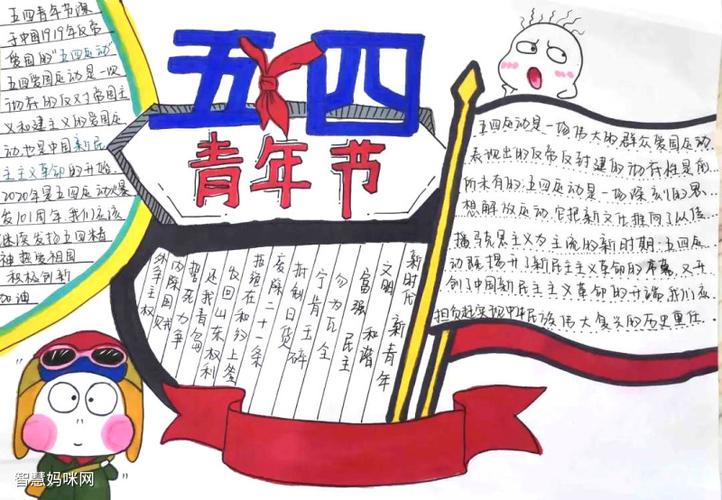 五四
青年节
五四青年节源
于中国1919年反帝
爱国的"五四运动"
五四爱国运动是一次
彻底的反对帝国主
义和建主义的爱国运
动也是中国新民
主主义革命的开始
2020年是五四运动爆
发101周年我们应该
继续发扬五四精
神热爱祖国
积极创新
加油
新时代 新青年
文明 和谐
富强 民主
勿为瓦全
宁肯玉碎
抵制日货
废除二十一条
拒绝在和约上签
收回山东权利
还我青岛
誓死力争
内除国贼
外争主权
五四运动是一场伟大的群众爱国运动
表现出的反帝反封建的彻底性是前
所未有的五四运动是一场深刻的思
想解放运动,它把新文化推向了以传
播马克思主义为主流的新时期.五四运
动既揭开了新民主主义革命的序幕,又开
创了中国新民主主义革命的开端,我们应
担负起实现中华民族伟大复兴的历史重任.
智慧妈咪网